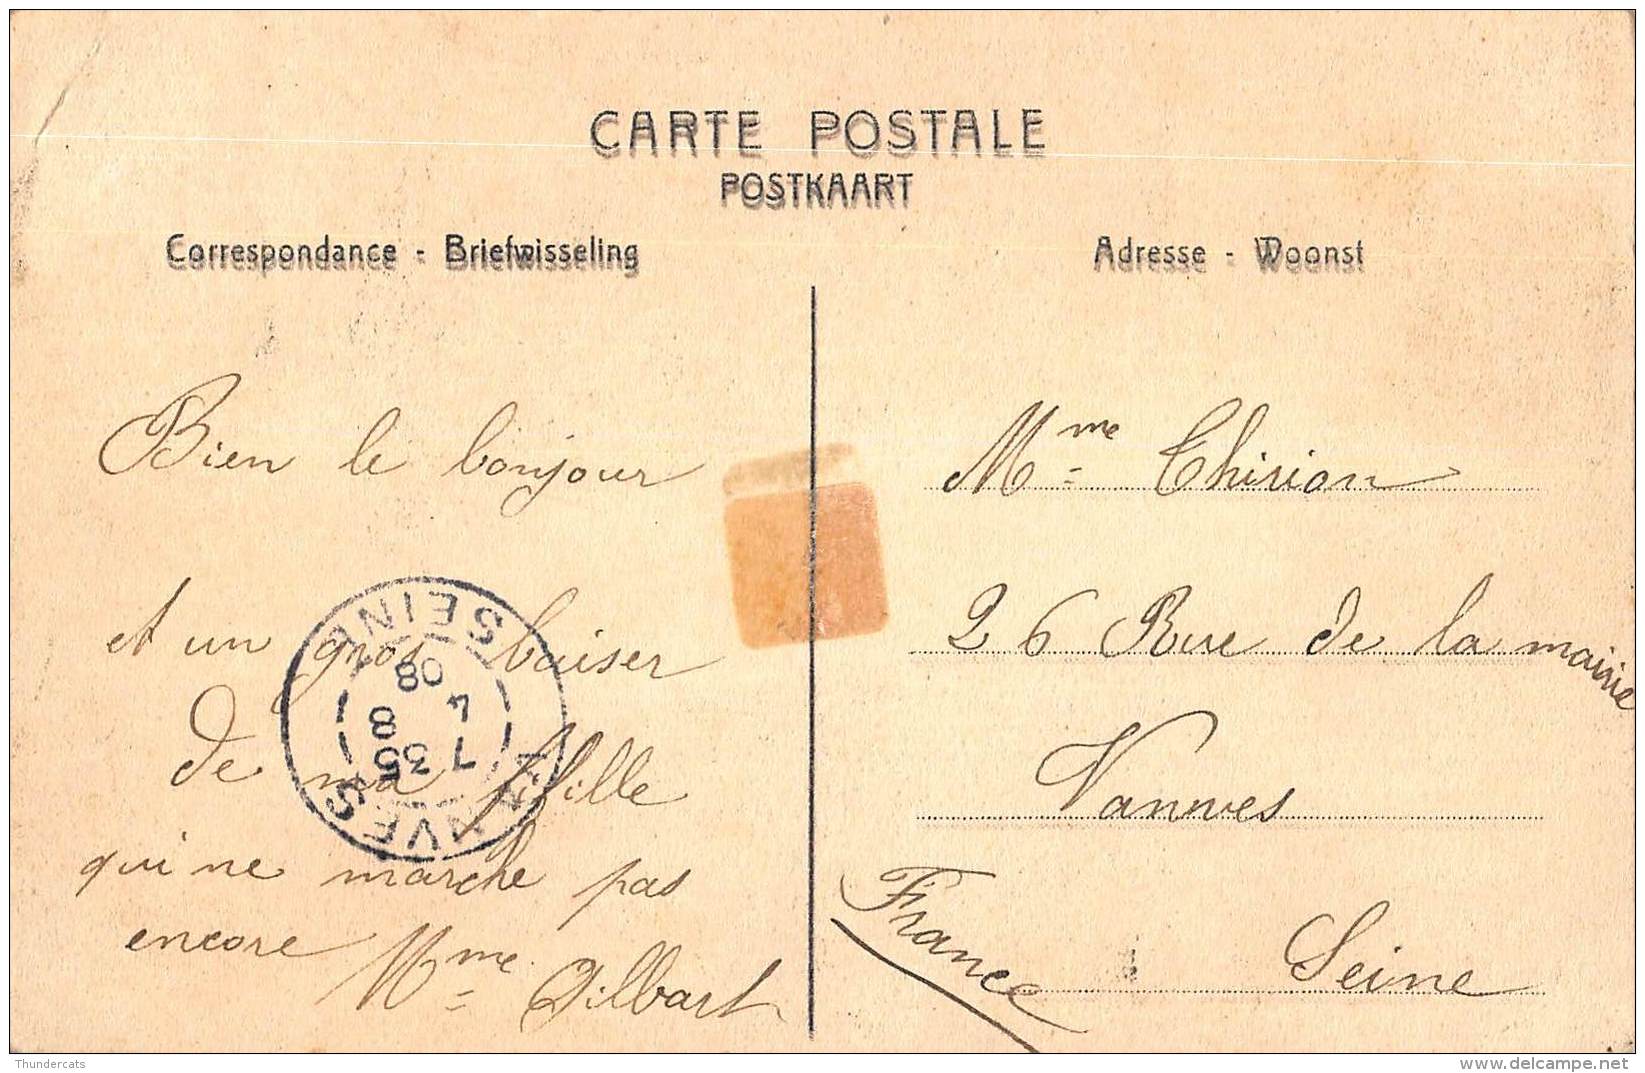 CARTE POSTALE
POSTKAART
Correspondance - Briefwisseling
Adresse - Woonst
Bien le bonjour
et un gros baiser
de ma fifille
qui ne marche pas
encore Mme Gilbart
Mme Thirion
26 Rue de la mairie
Vanves
France
Seine
VANVES
7 35
4 8
08
SEINE
Thundercats
delcampe.net